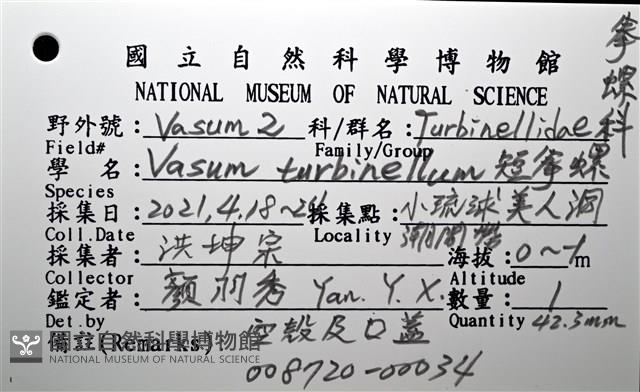 拳螺科
國立自然科學博物館
NATIONAL MUSEUM OF NATURAL SCIENCE
野外號：Vasum 2 科/群名：Turbinellidae科
Field# Family/Group
學 名：Vasum turbinellum 短拳螺
Species
採集日：2021,4,18~24 採集點：小琉球美人洞
潮間帶
Coll.Date Locality
採集者：洪坤宗 海拔：0~-1m
Collector Altitude
鑑定者：顏羽秀 Yan. Y. X. 數量：1
Det.by Quantity 42.3mm
備註(Remarks) 空殼及口蓋
國立自然科學博物館
NATIONAL MUSEUM OF NATURAL SCIENCE
008720-00034